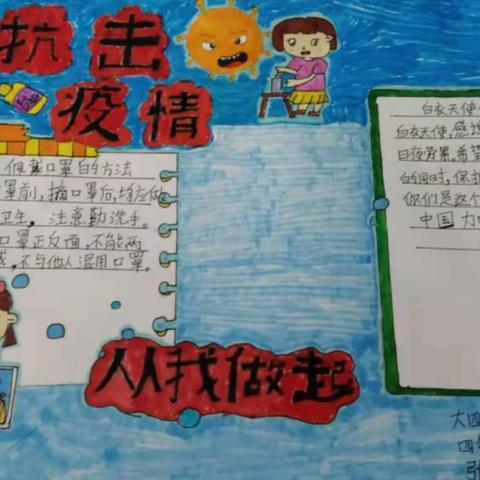 抗击
疫情
佩戴口罩的方法
口罩前,摘口罩后,均应做
卫生。注意勤洗手。
口罩正反面,不能两
戴,不与他人混用口罩。
人人我做起
白衣天使
白衣天使,感谢
日夜劳累,希望
的同时,保护
你们是这个
中国力
大四
四
张